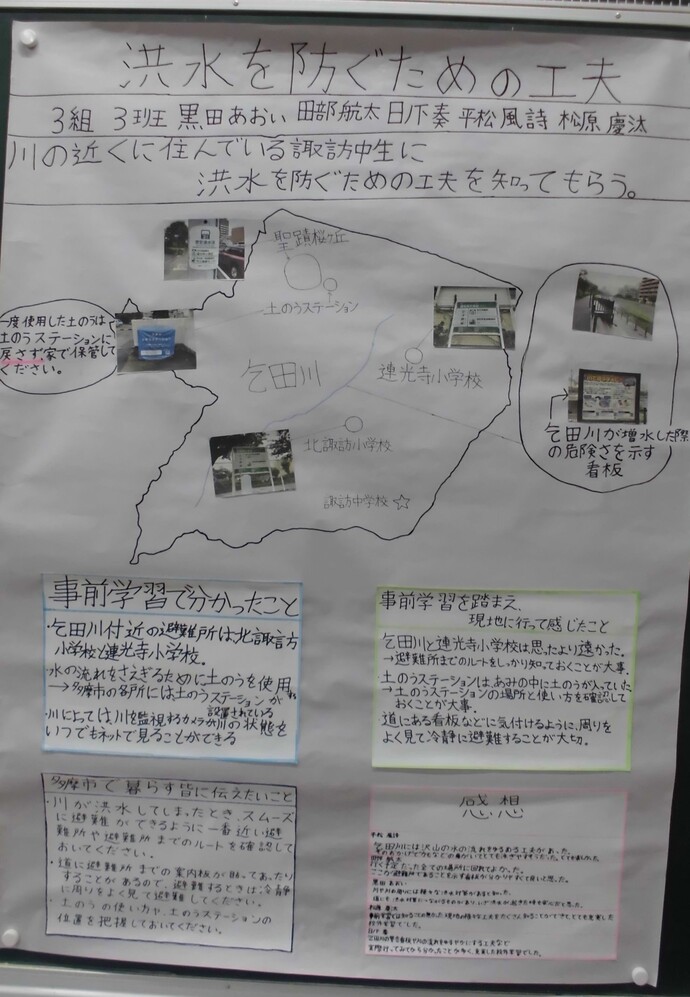 洪水を防ぐための工夫
3組 3班 黒田あおい 田部航太 日下奏 平松風詩 松原慶汰
川の近くに住んでいる諏訪中生に
洪水を防ぐための工夫を知ってもらう。
聖蹟桜ヶ丘
土のうステーション
一度使用した土のうは
土のうステーションに
戻さず家で保管して
ください。
乞田川
連光寺小学校
北諏訪小学校
諏訪中学校
乞田川が増水した際
の危険さを示す
看板
事前学習で分かったこと
・乞田川付近の避難所は、北諏訪
小学校と連光寺小学校。
・水の流れをさえぎるために土のうを使用
→多摩市の各所には土のうステーションが
設置されている
・川によっては川を監視するカメラが川の状態を
いつでもネットで見ることができる
事前学習を踏まえ、
現地に行って感じたこと
乞田川と連光寺小学校は思ったより遠かった。
→避難所までのルートをしっかり知っておくことが大事。
・土のうステーションは、あみの中に土のうが入っていた
→土のうステーションの場所と使い方を確認して
おくことが大事。
道にある看板などに気付けるように、周りを
よく見て冷静に避難することが大切。
多摩市で暮らす皆に伝えたいこと
・川が洪水してしまったとき、スムーズ
に避難ができるように一番近い避
難所や避難所までのルートを確認して
おいてください。
・道に避難所までの案内板が貼ってあったり
することがあるので、避難するときは冷静
に周りをよく見て避難してください。
・土のうの使い方や、土のうステーションの
位置を把握しておいてください。
感想
平松 風詩
乞田川には沢山の水の流れを守る工夫があった。
田部 航太
行く予定だった全ての場所に回れてよかった。
黒田 あおい
松原 慶汰
日下 奏
実際行ってみて分かったことが多く、充実した校外学習でした。